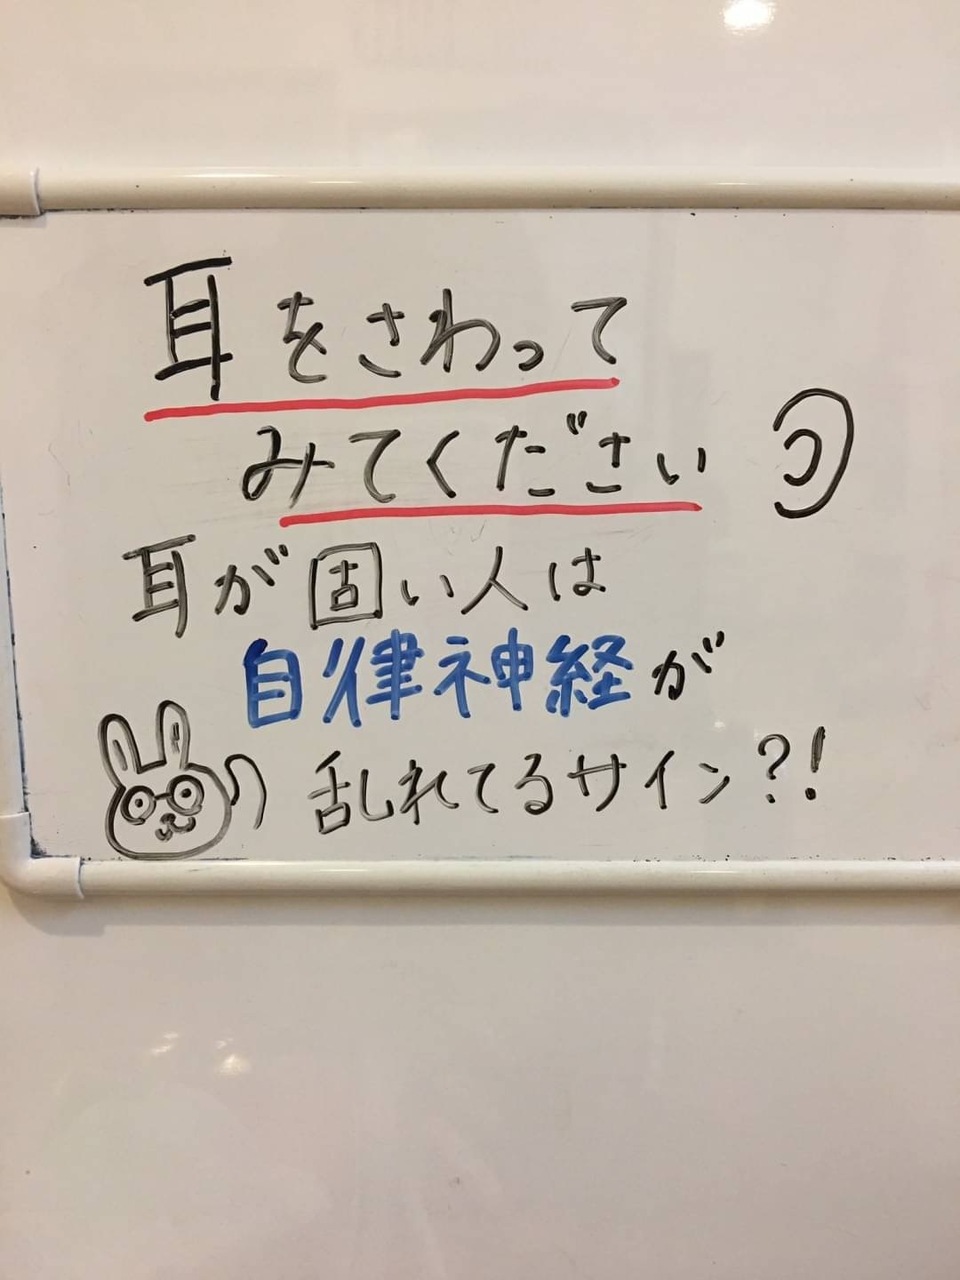 耳をさわって
みてください
耳が固い人は
自律神経が
乱れてるサイン?!